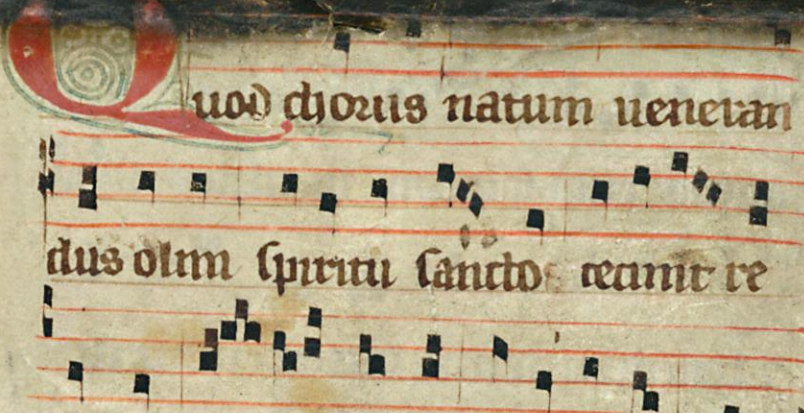 Quod chorus natum ueneran
dus olim spiritu sancto cecinit re